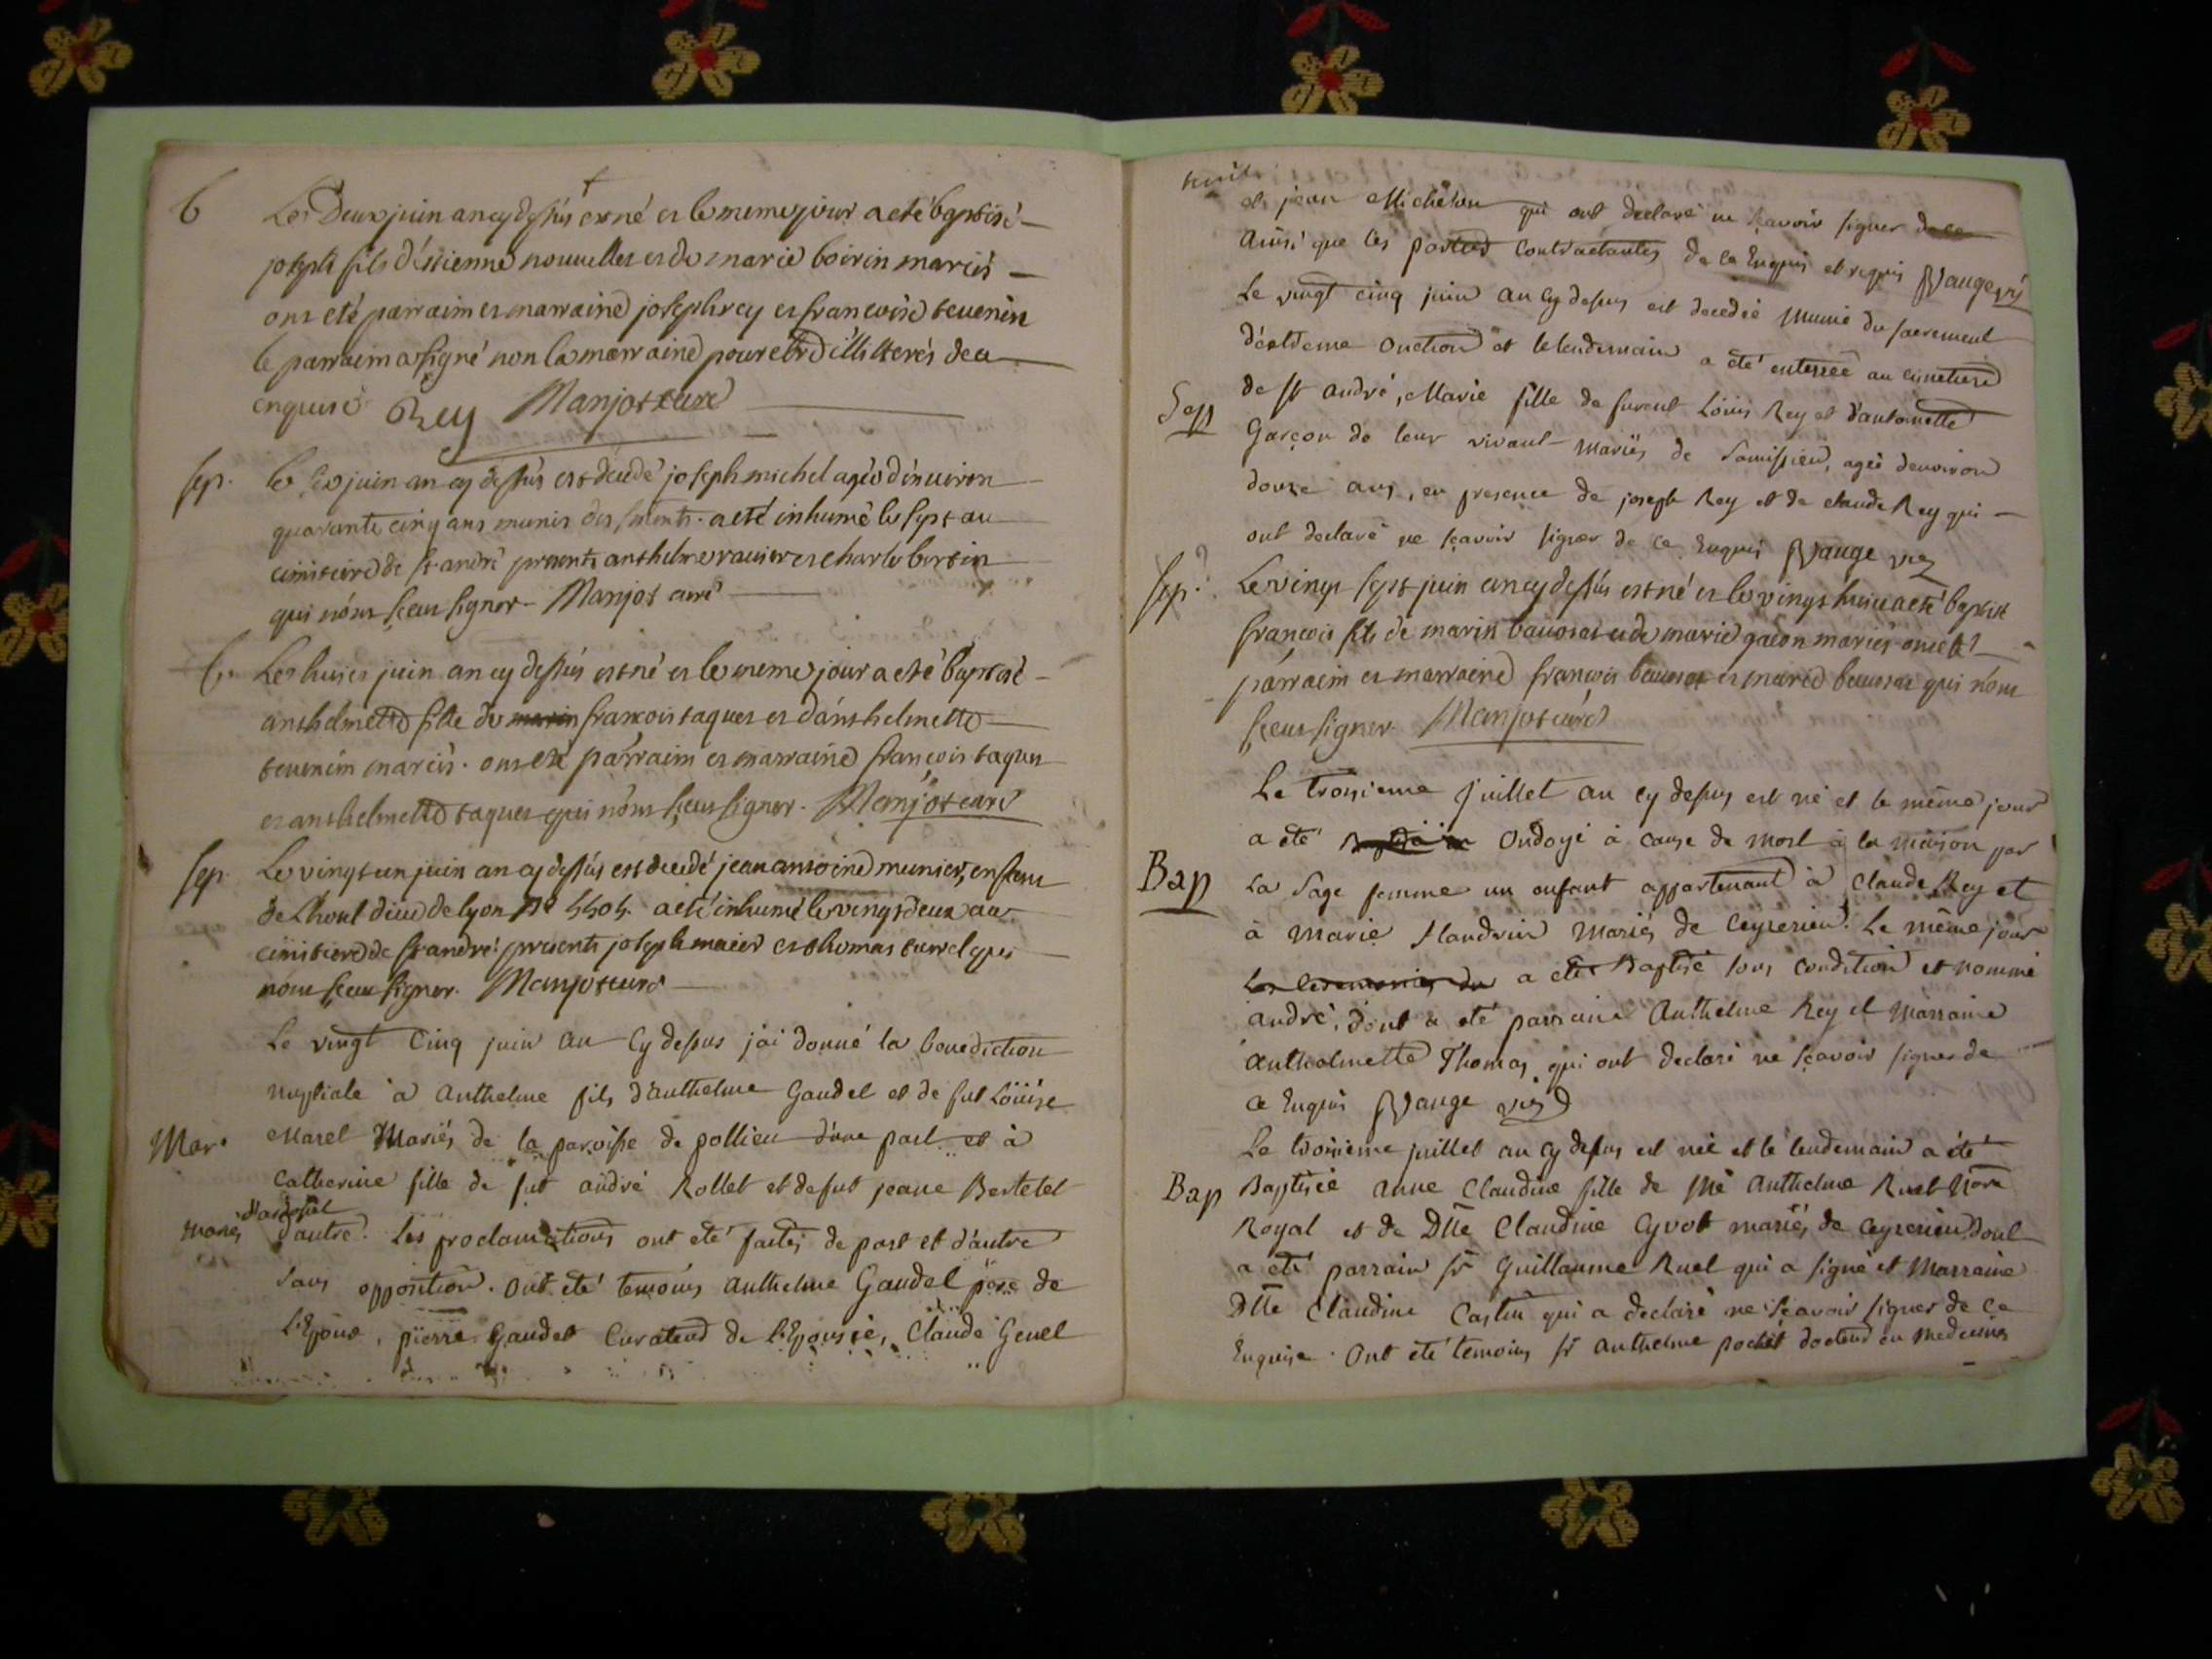 b
Le Deux juin an cy dessus est né et le meme jour a eté baptisé
joseph fils d'étienne nouvelles et de marie boirin mariés
ont eté parraim et marraine joseph rey et francoise tevenin
le parraim a signé non la marraine pour etre illiterés de ce
enquise Rey Manjot curé
sep. le six juin an cy dessus est décédé joseph michel agé d'enuiron
quarante cinq ans munis des sments. a eté inhumé le sept au
cimitiere de st andré presents anthelme rauier et charle bertin
qui n'ont sceu signer Manjot curé
b. Le huit juin an cy dessus est né et le meme jour a eté baptisé
anthelmette fille de marin francois taques et d'anthelmette
tevenim mariés. ont eté parraim et marraine françois taques
et anthelmette taques qui n'ont sceu signer. Manjot curé
sep Le vingt un juin an cy dessus est decedé jean antoine munier, enfant
de l'hotel dieu de lyon né 5505. a eté inhumé le vingt deux au
cimitiere de st andré: presents joseph maier et thomas curvel qui
n'ont sceu signer. Manjot curé
Le vingt Cinq juin an Cy dessus j'ai donné la benediction
nuptiale à Anthelme fils d'Anthelme Gaudel et de fut Loüise
Mar. Marel Mariés de la paroisse de pollieu d'une part et à
Catherine fille de fut andré Rollet et de fut jeane Bertetet
mariés d'autre. Les proclamations ont eté faites de part et d'autre
Sans opposition. Ont eté temoins Anthelme Gaudel pere de
L'Epoux, pierre Gaudet Curateur de L'Epousée, Claude Genel
suite
et jean Michelon qui ont declaré ne sçavoir signer de ce
Ainsi que les parties Contractantes de ce Enquis et requis
Le vingt cinq juin an Cy dessus est decedée Munie du sacrement
d'extreme Onction et le lendemain a été enterrée au cimetiere
Sep de st andré, Marie fille de furent Loüis Rey et d'antoinette
Garçon de leur vivant Mariés de agée d'environ
douze ans, en presence de joseph Rey et de claude Rey qui
ont declaré ne sçavoir signer de ce Enquis
sep. Le vingt sept juin an cy dessus est né et le vingt huit a eté baptisé
françois fils de marin et de marie mariés ont eté
parraim et marraine françois et marie qui n'ont
sceu signer. Manjot curé
Le troisieme juillet an Cy dessus est né et le même jour
a eté Ondoyé à cause de mort à la maison par
Bap La Sage femme un enfant appartenant à Claude Rey et
à Marie Mandrin Mariés de Ceyzerieu. Le même jour
Les Ceremonies du a eté Baptisé sous Condition et nommé
André, dont a eté parraine Anthelme Rey et Marraine
Anthelmette Thomas, qui ont declaré ne sçavoir signer de
ce Enquis
Le troisieme juillet an Cy dessus est née et le lendemain a été
Bap Baptisée Anne Claudine fille de Me Anthelme Ruel Nore
Royal et de Dlle Claudine Cyvot mariés de Ceyzerieu, dont
a eté parrain sr Guillaume Ruel qui a signé et Marraine
Dlle Claudine Castin qui a declaré ne sçavoir signer de Ce
Enquise. Ont eté temoins sr Anthelme pochet docteur en Medecine